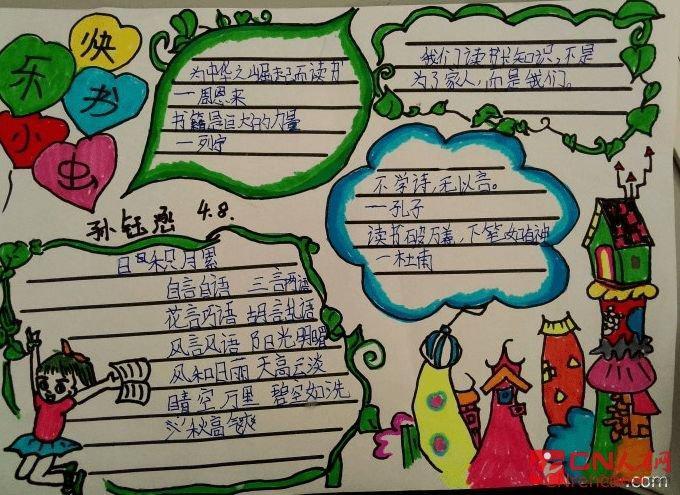 快乐
书
小虫
为中华之崛起而读书
一周恩来
书籍是巨大的力量
一列宁
我们读书长知识,不是
为了家人,而是我们。
不学诗,无以言。
一孔子
读书破万卷,下笔如有神
一杜甫
4.8.
日积月累
自言自语 三言两语
花言巧语 胡言乱语
风言风语 阳光明媚
风和日丽 天高云淡
晴空万里 碧空如洗
秋高气爽
CN人网